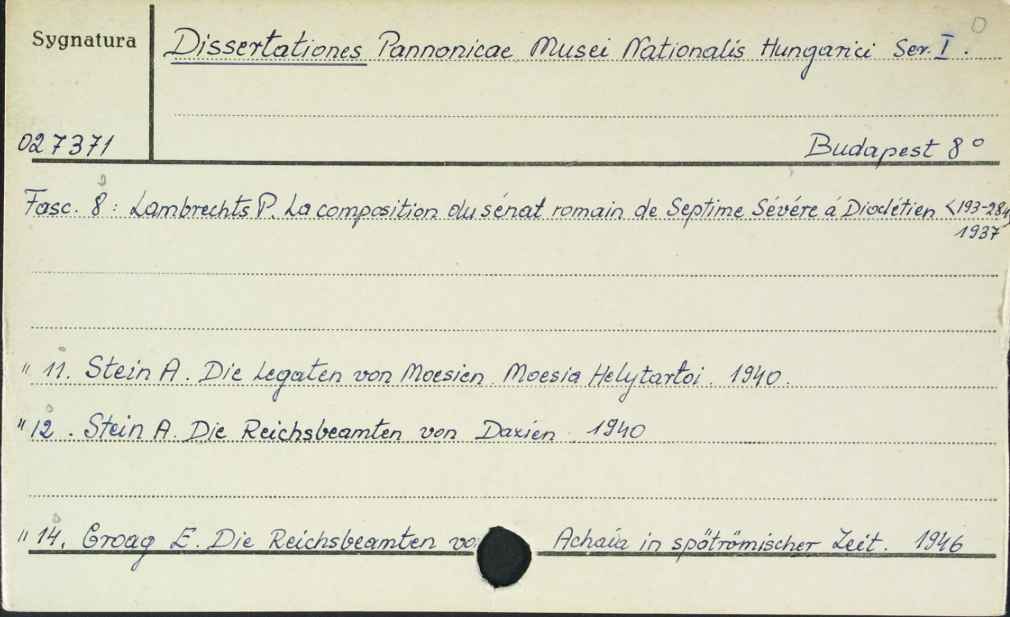 Sygnatura
Dissertationes Pannonicae Musei Nationalis Hungarici Ser. I.
027371
Budapest 8°
Fasc. 8: Lambrechts P. La composition du sénat romain de Septime Sévére á Dioclétien <193-284>
1937
" 11. Stein A. Die Legaten von Moesien. Moesia Helytartoi. 1940.
" 12. Stein A. Die Reichsbeamten von Dazien. 1940
" 14. Groag E. Die Reichsbeamten Achaia in spätrömischer Zeit. 1946